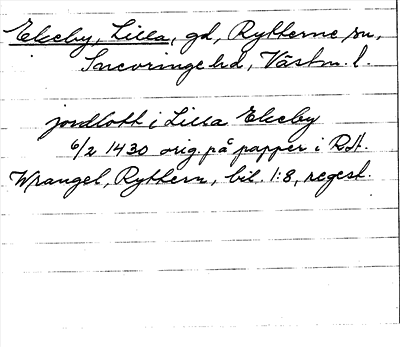 Ekeby, Lilla, gd, Rytterne sn,
Snevringe hd, Västm. l.
jordlott i Lilla Ekeby
6/2 1430 orig. på papper i RA.
Wrangel, Ryttern, bil. 1:8, regest.